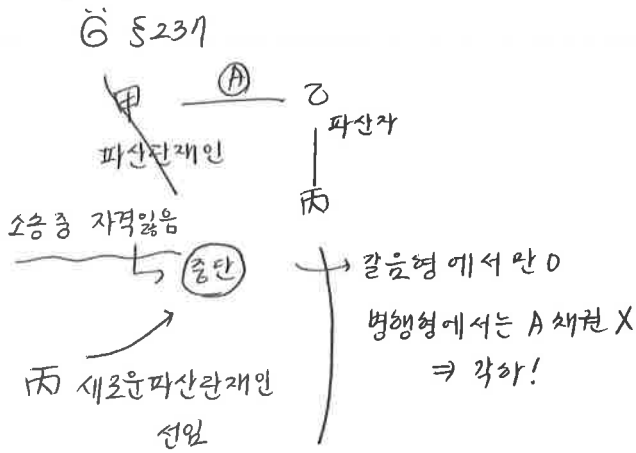 Ⓖ §237
甲 Ⓐ 乙
파산자
파산관재인
丙
소송 중 자격잃음
중단
갈음형에서만 O
병행형에서는 A채권 X
⇒ 각하!
丙 새로운파산관재인
선임